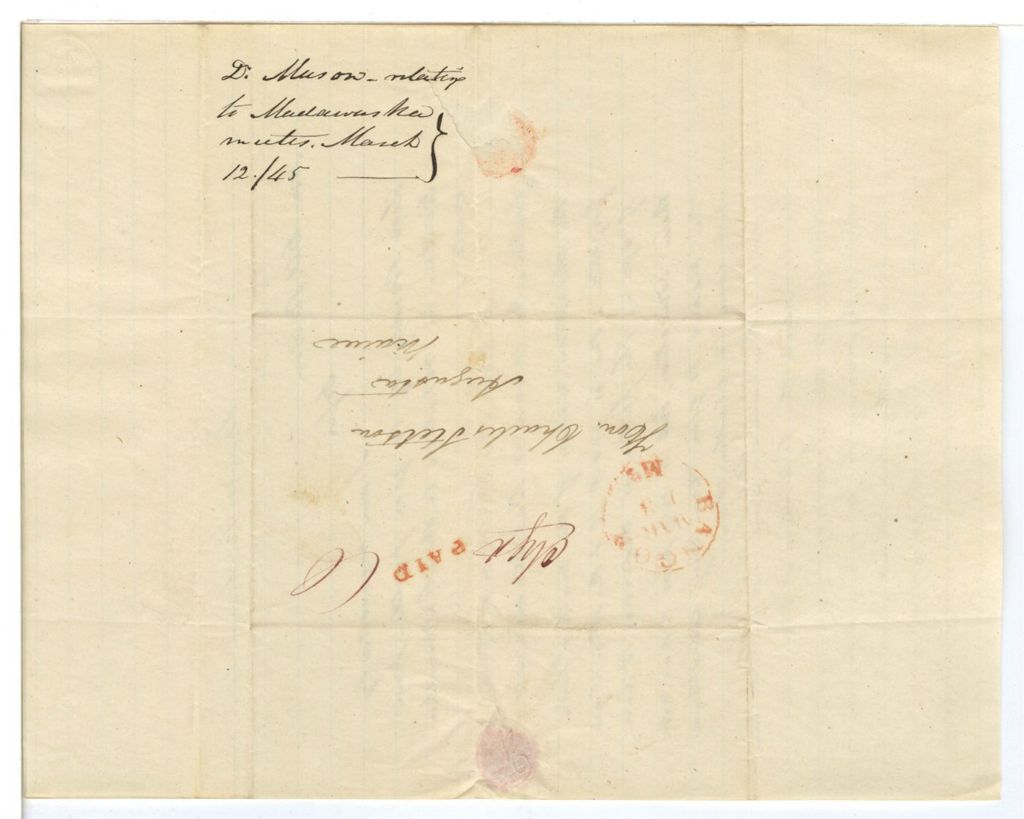 D. Mason - relating
to Madawaska
matters. March
12./45
Hon. Charles Stetson
Augusta
Maine
BANGOR
MAR
Me
PAID